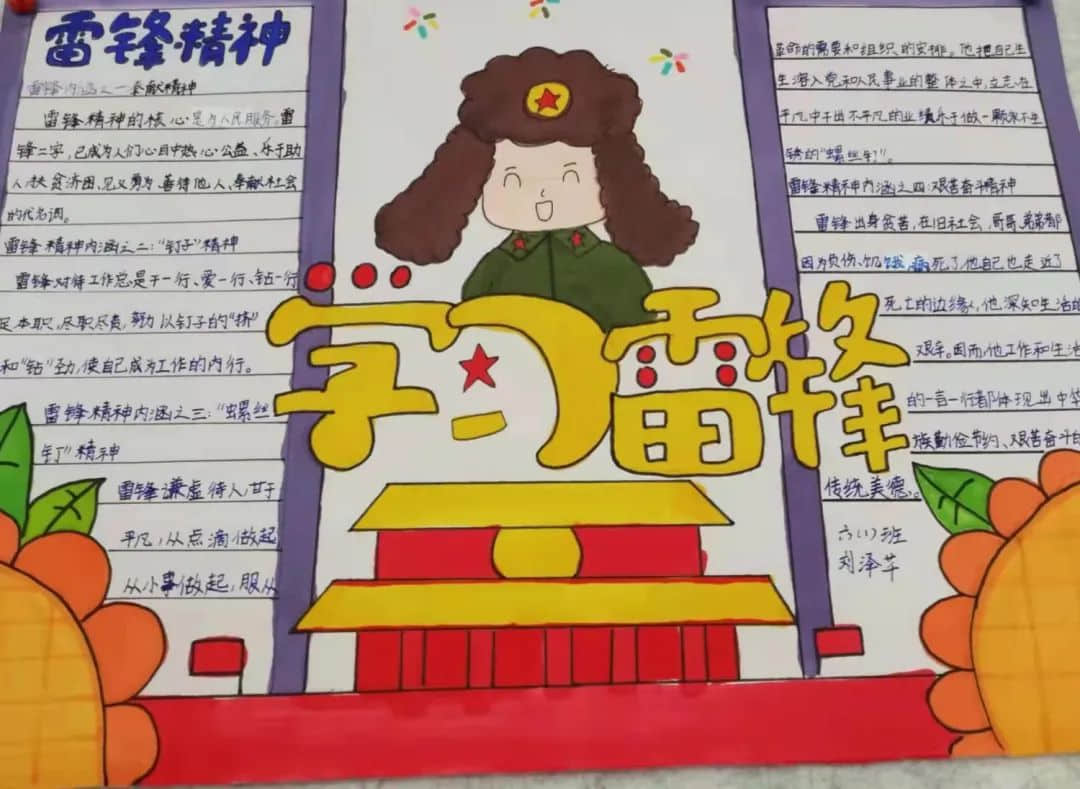 雷锋精神
雷锋内涵之一奉献精神
雷锋精神的核心是为人民服务,雷
锋二字,已成为人们心目中热心公益、乐于助
人,扶贫济困,见义勇为,善待他人,奉献社会
的代名词。
雷锋精神内涵之二:“钉子”精神
雷锋对待工作总是干一行、爱一行、钻一行
足本职,尽职尽责,努力以钉子的“挤”
和“钻”劲,使自己成为工作的内行。
雷锋精神内涵之三:“螺丝
钉”精神
雷锋谦虚待人,甘于
平凡,从点滴做起
从小事做起,服从
学习雷锋
革命的需要和组织的安排。他把自己生
生溶入党和人民事业的整体之中,立志在
平凡中干出不平凡的业绩乐于做一颗永不生
锈的“螺丝钉”。
雷锋精神内涵之四:艰苦奋斗精神
雷锋出身贫苦,在旧社会,哥哥,弟弟都
因为负伤、饥饿,病死了,他自己也走近了
死亡的边缘,他深知生活的
艰辛。因而,他工作和生活
的一言一行都体现出中华
族勤俭节约、艰苦奋斗的
传统美德。
六(1)班
刘泽芊